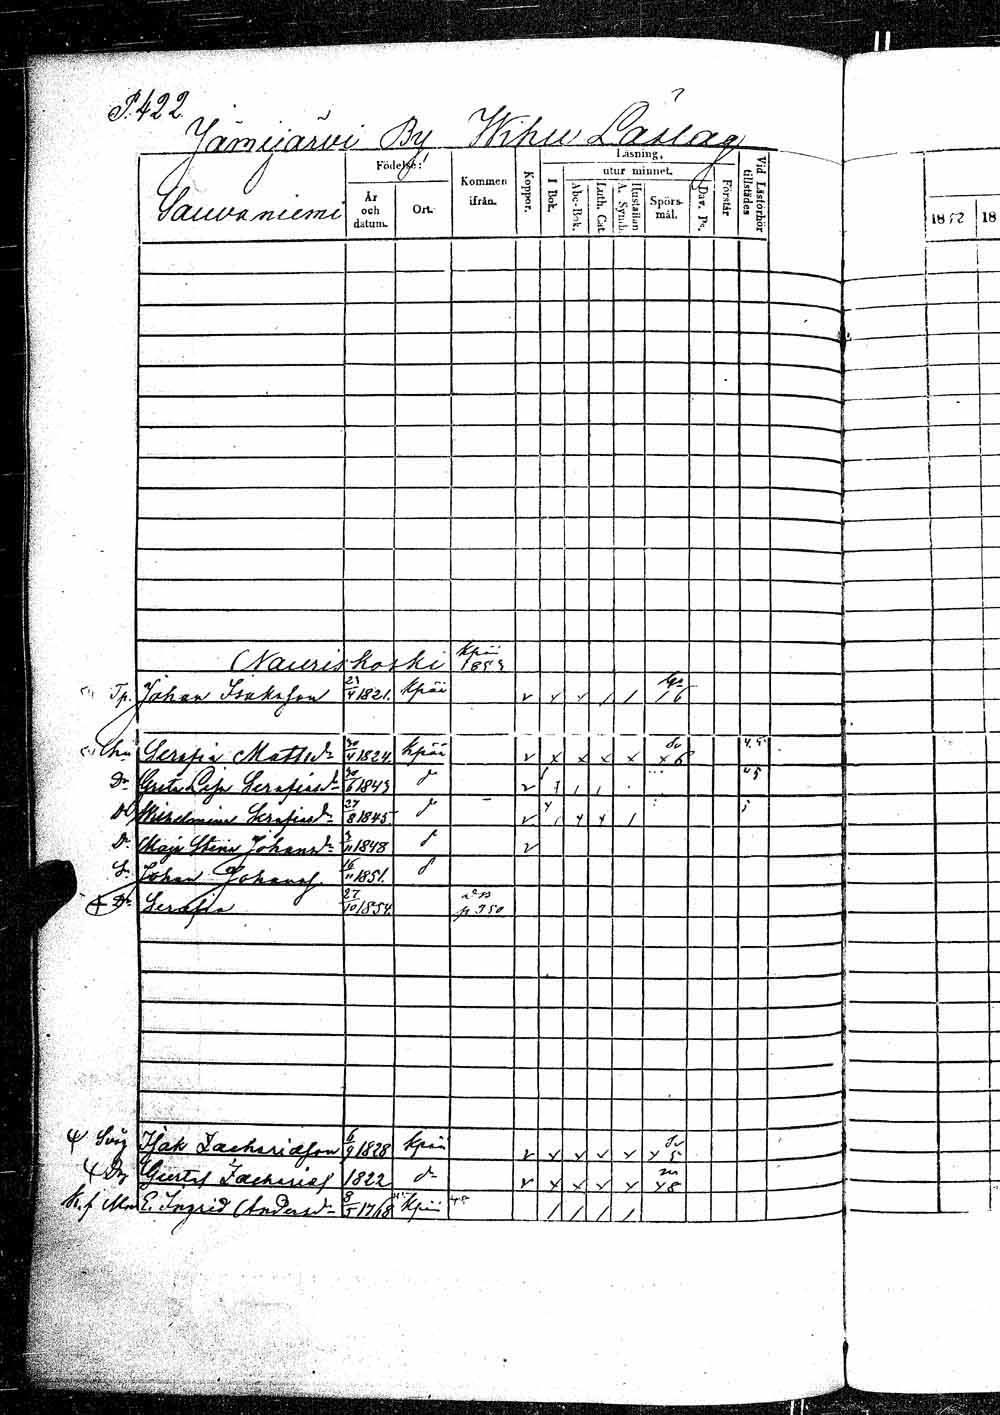 P. 422
Jämijärvi By Wihu Läslag
Sauvaniemi
Födelse:
År och datum.
Ort.
Kommen ifrån.
Koppor.
Läsning,
I Bok.
utur minnet.
Abc-Bok.
Luth. Cat.
Hustaflan A. Symb.
Spörsmål.
Dav. Ps.
Förstår
Vid Läsförhör tillstädes
1852 18
Nauriskoski Kpää 1853
Tp. Johan Isaksson 4 1821. Kpää v x x / / 16
hu Serafia Mattsdr 30/4 1824. Kpää v x x x x x6
Dr Greta Lisa Serafiasdr 30/6 1843 do v / /
Dr Wilhelmina Serafiasdr 27/8 1845 do v / x x /
Dr Maja Stina Johansdr 1848 do v
S. Johan Johanss. 16/11 1851. do
Dr Serafia 27/10 1854. p 350
Isak Zachariasson 6/9 1828 Kpää v x x x x x 5
Gustaf Zacharias 1822 do v x x x x x8
E. Ingrid Andersdr 8/5 1768 Kpää / / / /